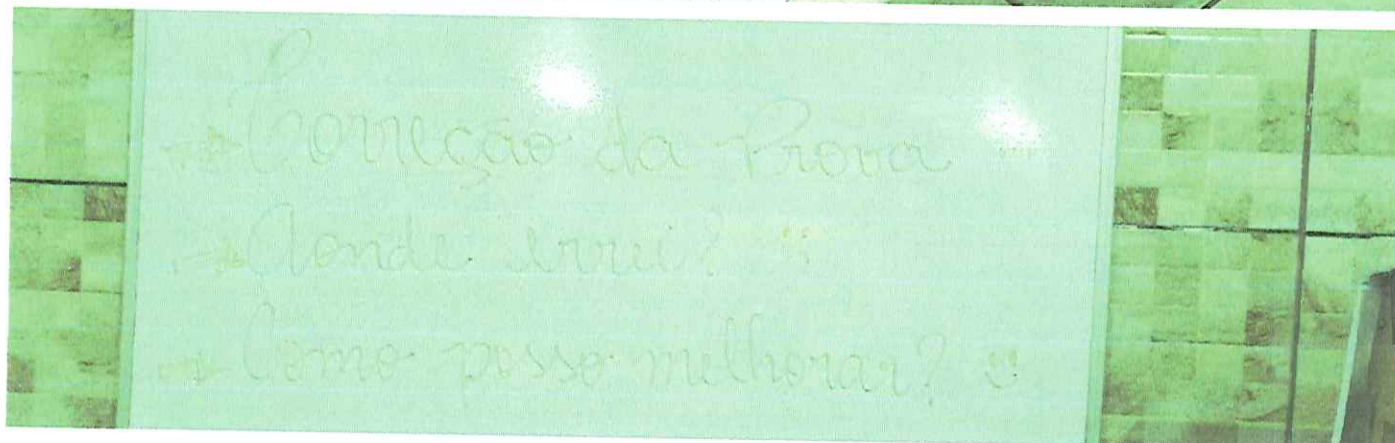 → Correção da Prova
→ Aonde errei? :(
→ Como posso melhorar? :)